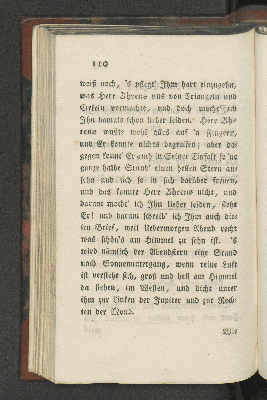 110
weiß noch, 's pflegt' Ihm hart einzugehn,
was Herr Ahrens uns von Triangeln und
Cirkeln vormachte, und doch mocht' ich
Ihn damals schon lieber leiden. Herr Ah-
rens wußte wohl alles auf 'n Fingern,
und Er konnte nichts begreifen; aber da-
gegen konnt' Er auch in Seiner Einfalt so 'ne
ganze halbe Stund' einen hellen Stern an-
sehn und sich so in sich darüber freuen,
und das konnte Herr Ahrens nicht, und
darum mocht' ich Ihn lieber leiden, sieht
Er! und darum schreib' ich Ihm auch die-
sen Brief, weil Uebermorgen Abend recht
was schön's am Himmel zu sehn ist. 's
wird nämlich der Abendstern eine Stund
nach Sonnenuntergang, wenn reine Luft
ist versteht sich, groß und hell am Himmel
da stehen, im Westen, und dicht unter
ihm zur Linken der Jupiter und zur Rech-
ten der Mond.